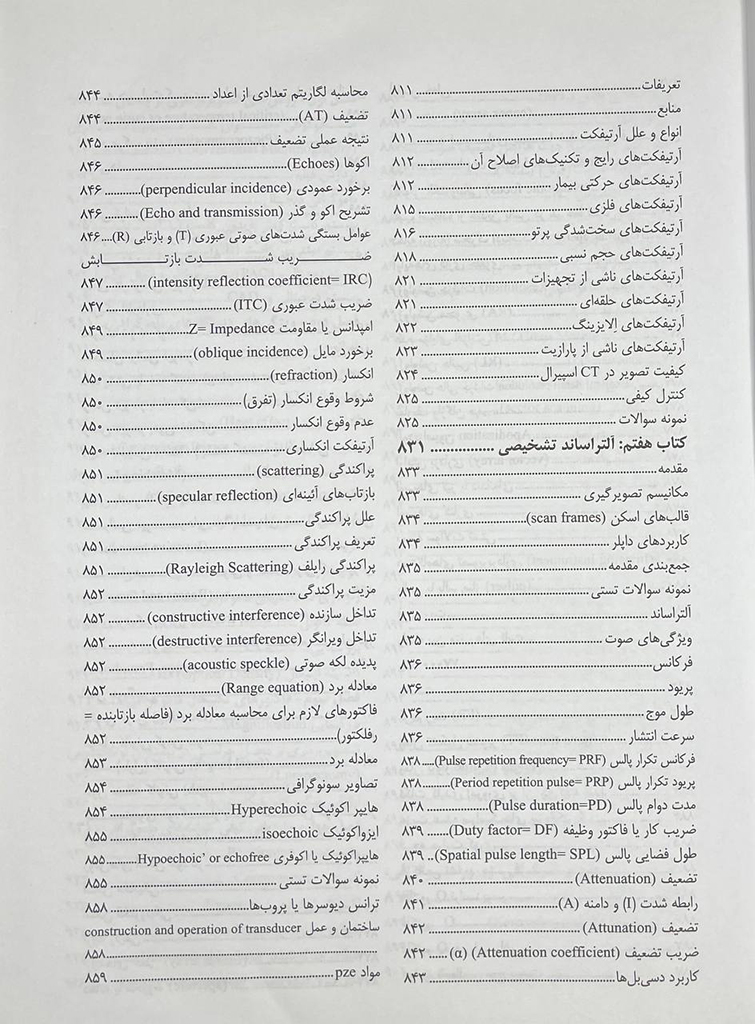 تعریفات ..... ۸۱۱
منابع ..... ۸۱۱
انواع و علل آرتیفکت ..... ۸۱۱
آرتیفکت‌های رایج و تکنیک‌های اصلاح آن ..... ۸۱۲
آرتیفکت‌های حرکتی بیمار ..... ۸۱۲
آرتیفکت‌های فلزی ..... ۸۱۵
آرتیفکت‌های سخت‌شدگی پرتو ..... ۸۱۶
آرتیفکت‌های حجم نسبی ..... ۸۱۸
آرتیفکت‌های ناشی از تجهیزات ..... ۸۲۱
آرتیفکت‌های حلقه‌ای ..... ۸۲۱
آرتیفکت‌های اِلایزینگ ..... ۸۲۲
آرتیفکت‌های ناشی از پارازیت ..... ۸۲۳
کیفیت تصویر در CT اسپیرال ..... ۸۲۴
کنترل کیفی ..... ۸۲۵
نمونه سوالات ..... ۸۲۵
کتاب هفتم: آلتراساند تشخیصی ..... ۸۳۱
مقدمه ..... ۸۳۳
مکانیسم تصویرگیری ..... ۸۳۳
قالب‌های اسکن (scan frames) ..... ۸۳۴
کاربردهای داپلر ..... ۸۳۴
جمع‌بندی مقدمه ..... ۸۳۵
نمونه سوالات تستی ..... ۸۳۵
آلتراساند ..... ۸۳۵
ویژگی‌های صوت ..... ۸۳۵
فرکانس ..... ۸۳۶
پریود ..... ۸۳۶
طول موج ..... ۸۳۶
سرعت انتشار ..... ۸۳۶
فرکانس تکرار پالس (Pulse repetition frequency= PRF) ..... ۸۳۸
پریود تکرار پالس (Period repetition pulse= PRP) ..... ۸۳۸
مدت دوام پالس (Pulse duration=PD) ..... ۸۳۸
ضریب کار یا فاکتور وظیفه (Duty factor= DF) ..... ۸۳۹
طول فضایی پالس (Spatial pulse length= SPL) .. ۸۳۹
تضعیف (Attenuation) ..... ۸۴۰
رابطه شدت (I) و دامنه (A) ..... ۸۴۱
تضعیف (Attunation) ..... ۸۴۲
ضریب تضعیف (Attenuation coefficient) (α) ..... ۸۴۲
کاربرد دسی‌بل‌ها ..... ۸۴۳
محاسبه لگاریتم تعدادی از اعداد ..... ۸۴۴
تضعیف (AT) ..... ۸۴۴
نتیجه عملی تضعیف ..... ۸۴۵
اکوها (Echoes) ..... ۸۴۶
برخورد عمودی (perpendicular incidence) ..... ۸۴۶
تشریح اکو و گذر (Echo and transmission) ..... ۸۴۶
عوامل بستگی شدت‌های صوتی عبوری (T) و بازتابی (R) .... ۸۴۶
ضریب شدت بازتابش
(intensity reflection coefficient= IRC) ..... ۸۴۷
ضریب شدت عبوری (ITC) ..... ۸۴۷
امپدانس یا مقاومت Z= Impedance ..... ۸۴۹
برخورد مایل (oblique incidence) ..... ۸۴۹
انکسار (refraction) ..... ۸۵۰
شروط وقوع انکسار (تفرق) ..... ۸۵۰
عدم وقوع انکسار ..... ۸۵۰
آرتیفکت انکساری ..... ۸۵۰
پراکندگی (scattering) ..... ۸۵۱
بازتاب‌های آئینه‌ای (specular reflection) ..... ۸۵۱
علل پراکندگی ..... ۸۵۱
تعریف پراکندگی ..... ۸۵۱
پراکندگی رایلف (Rayleigh Scattering) ..... ۸۵۱
مزیت پراکندگی ..... ۸۵۲
تداخل سازنده (constructive interference) ..... ۸۵۲
تداخل ویرانگر (destructive interference) ..... ۸۵۲
پدیده لکه صوتی (acoustic speckle) ..... ۸۵۲
معادله برد (Range equation) ..... ۸۵۲
فاکتورهای لازم برای محاسبه معادله برد (فاصله بازتابنده =
رفلکتور) ..... ۸۵۲
معادله برد ..... ۸۵۳
تصاویر سونوگرافی ..... ۸۵۴
هایپر اکوئیک Hyperechoic ..... ۸۵۴
ایزواکوئیک isoechoic ..... ۸۵۵
هایپراکوئیک یا اکوفری Hypoechoic’ or echofree ..... ۸۵۵
نمونه سوالات تستی ..... ۸۵۵
ترانس دیوسرها یا پروب‌ها ..... ۸۵۸
ساختمان و عمل construction and operation of transducer
..... ۸۵۸
مواد pze ..... ۸۵۹